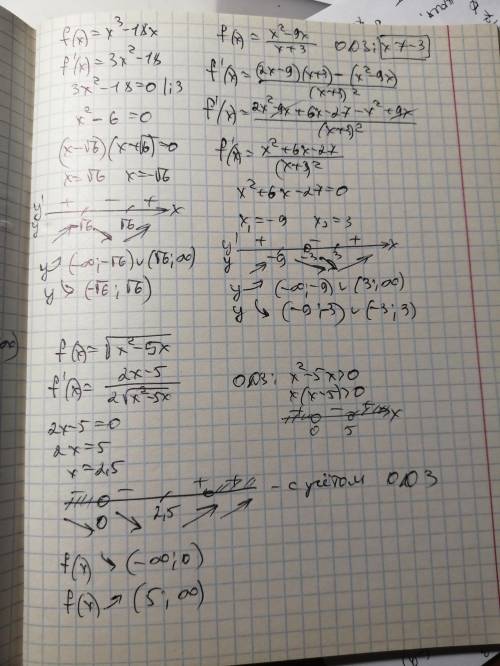 f(x)=x³-18x
f'(x)=3x²-18
3x²-18=0 |:3
x²-6=0
(x-√6)(x+√6)=0
x=√6 x=-√6
y' + - + x
y -√6 √6
y↗ (-∞;-√6)∪(√6;∞)
y↘ (-√6;√6)
f(x)=(x²-9x)/(x+3) ОДЗ: x≠-3
f'(x)=((2x-9)(x+3)-(x²-9x))/(x+3)²
f'(x)=(2x²-9x+6x-27-x²+9x)/(x+3)²
f'(x)=(x²+6x-27)/(x+3)²
x²+6x-27=0
x₁=-9 x₂=3
y' + - + x
y -9 -3 3
y↗ (-∞;-9)∪(3;∞)
y↘ (-9;-3)∪(-3;3)
f(x)=√(x²-5x)
f'(x)=(2x-5)/(2√(x²-5x))
2x-5=0
2x=5
x=2,5
ОДЗ: x²-5x>0
x(x-5)>0
+ - + x
0 5
- - + + - с учётом ОДЗ
0 2,5
f(x)↘ (-∞;0)
f(x)↗ (5;∞)